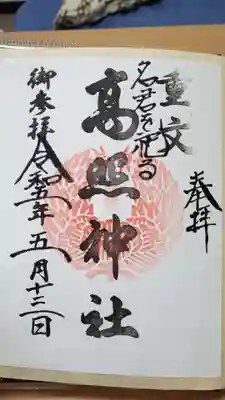 奉拝
重文
名君を祀る
高照神社
御参拝
令和三年五月十三日